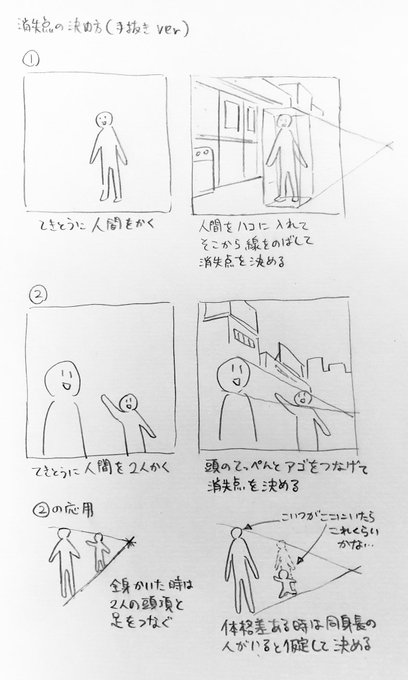 消失点の決め方(手抜きver)
①
てきとうに人間をかく
人間をハコに入れて
そこから線をのばして
消失点を決める
②
てきとうに人間を2人かく
頭のてっぺんとアゴをつなげて
消失点を決める
②の応用
全身かいた時は
2人の頭頂と
足をつなぐ
こいつがここにいたら
これくらい
かな…
体格差ある時は同身長の
人がいると仮定して決める